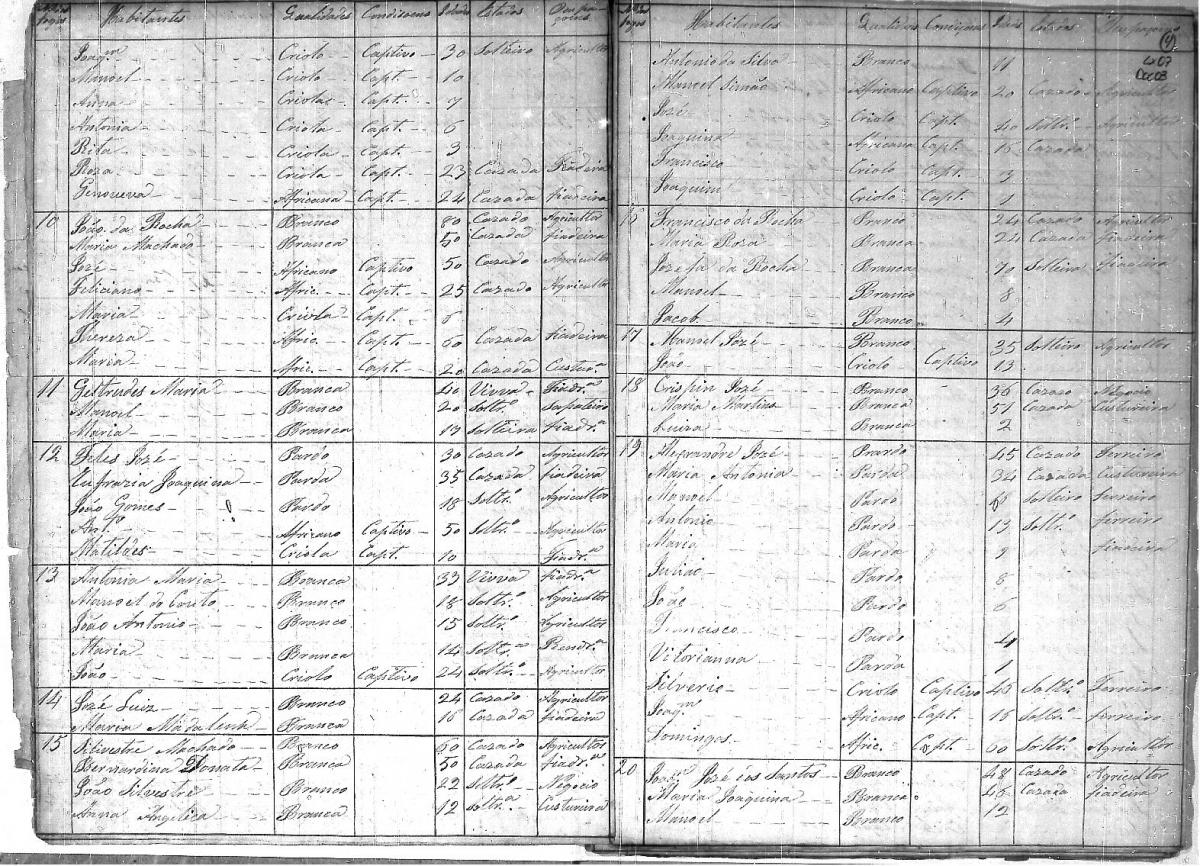 Fogos Habitantes Qualidades Condisoens Idades Estados
Joaq.m Criolo Captivo 30 Solteiro Agricultor
Manoel Criolo Capt. 10
Anna Criola Capt. 7
Antonia Criola Capt. 6
Rita Criola Capt. 3
Roza Criola Capt. 23 Cazada Fiadeira
Genoveva Africana Capt. 24 Cazada fiadeira
10 João da Rocha Branco 80 Cazado Agricultor
Maria Machado Branca 50 Cazada fiadeira
Jozé Africano Captivo 50 Cazado Agricultor
Feliciano Afric. Capt. 25 Cazado Agricultor
Maria Criola Capt. 8
Thereza Afric. Capt. 60 Cazada fiadeira
Maria Afric. Capt. 20 Cazada
11 Gestrudes Maria Branca 40 Viuva Fiadr.a
Manoel Branco 20 Soltr.o Sapateiro
Maria Branca 17 Solteira fiadr.a
12 Jozé Pardo 30 Cazado Agricultor
Eufrazia Joaquina Parda 35 Cazada fiadeira
João Gomes Pardo 18 Soltr.o Agricultor
Ant.o Africano Captivo 50 Soltr.o Agricultor
Matildes Criola Capt. 10 Fiadr.a
13 Antonia Maria Branca 33 Viuva fiadr.a
Manoel do Couto Branco 18 Soltr.o Agricultor
João Antonio Branco 15 Soltr.o Agricultor
Maria Branca 14 Soltr.a Rendr.a
João Criolo Captivo 24 Soltr.o Agricultor
14 Jozé Luiz Branco 24 Cazado Agricultor
Maria Madalenna Branca 16 Cazada fiadeira
15 Silvestre Machado Branco 60 Cazado Agricultor
Bernardina Donata Branca 50 Cazada fiadr.a
João Silvestre Branco 22 Soltr.o Negocio
Anna Angelica Branca 12 Soltr.a Custureira
Fogos Habitantes Idades Estados
Antonio da Silva Branco 11
Manoel Simão Africano Captivo 20 Cazado Agricultor
Jozé Criolo Capt. 40 Soltr.o Agricultor
Joaquina Africana Capt. 15 Cazada
Francisco Criolo Capt. 3
Joaquim Criolo Capt.
16 Francisco da Branco 24 Cazado Agricultor
Maria Roza Branca 24 Cazada fiadeira
Jozefa da Rocha Branca 70 Solteira fiadeira
Manoel Branco 8
Jacob Branco 4
17 Manoel Jozé Branco 35 Solteiro Agricultor
João Criolo Captivo 13
18 Crispin Jozé Branco 36 Cazado Negocio
Maria Martins Branca 51 Cazada Custureira
Luiza Branca 2
19 Alexandre Jozé Prardo 45 Cazado Ferreiro
Maria Antonia Parda 34 Cazada Custureira
Manoel Pardo Solteiro ferreiro
Antonio Pardo 13 Soltr.o ferreiro
Maria Parda 9 fiadeira
Julião Pardo 8
João Pardo 6
Francisco Pardo 4
Vitorianna Parda 1
Silverio Criolo Captivo 45 Soltr.o Ferreiro
Joaq.m Africano Capt. 16 Soltr.o ferreiro
Domingos Afric. Capt. 60 Soltr.o Agricultor
20 Joaq.m Jozé dos Santos Branco 48 Cazado Agricultor
Maria Joaquina Branca 46 Cazada fiadeira
Manoel Branco 12